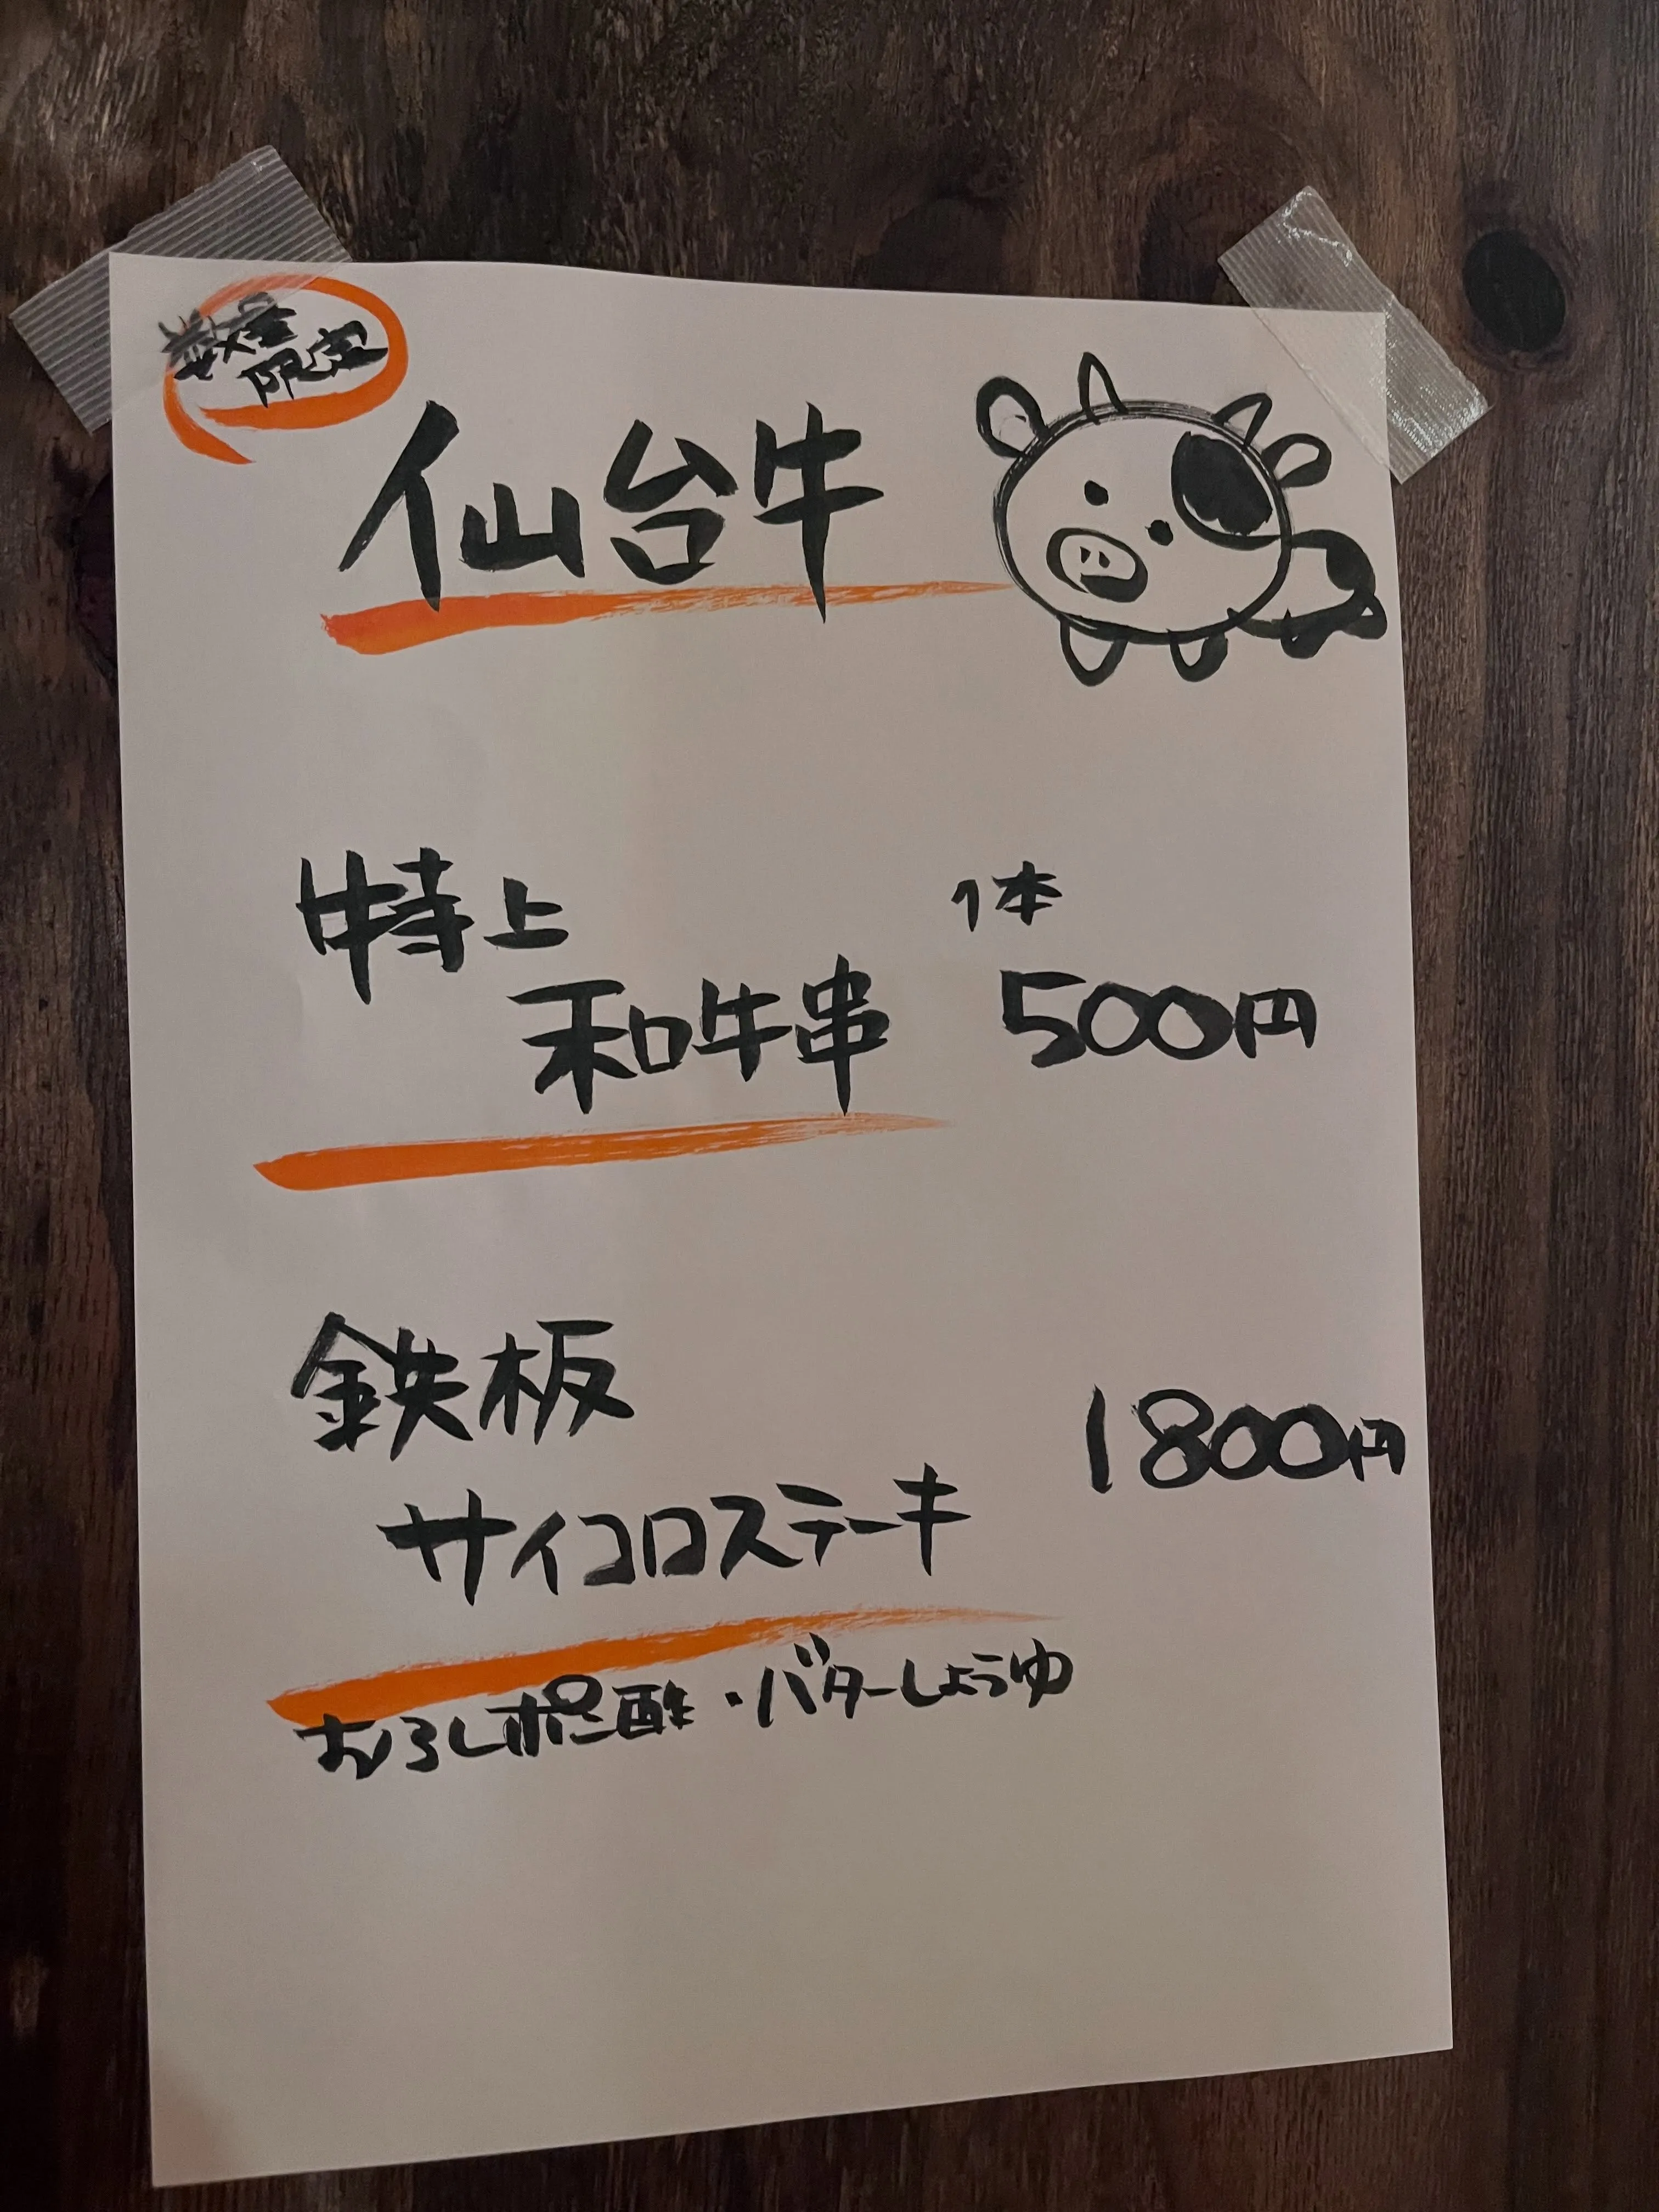 数量
限定
仙台牛
特上
和牛串
1本
500円
鉄板
サイコロステーキ
1800円
おろしポン酢・バターしょうゆ